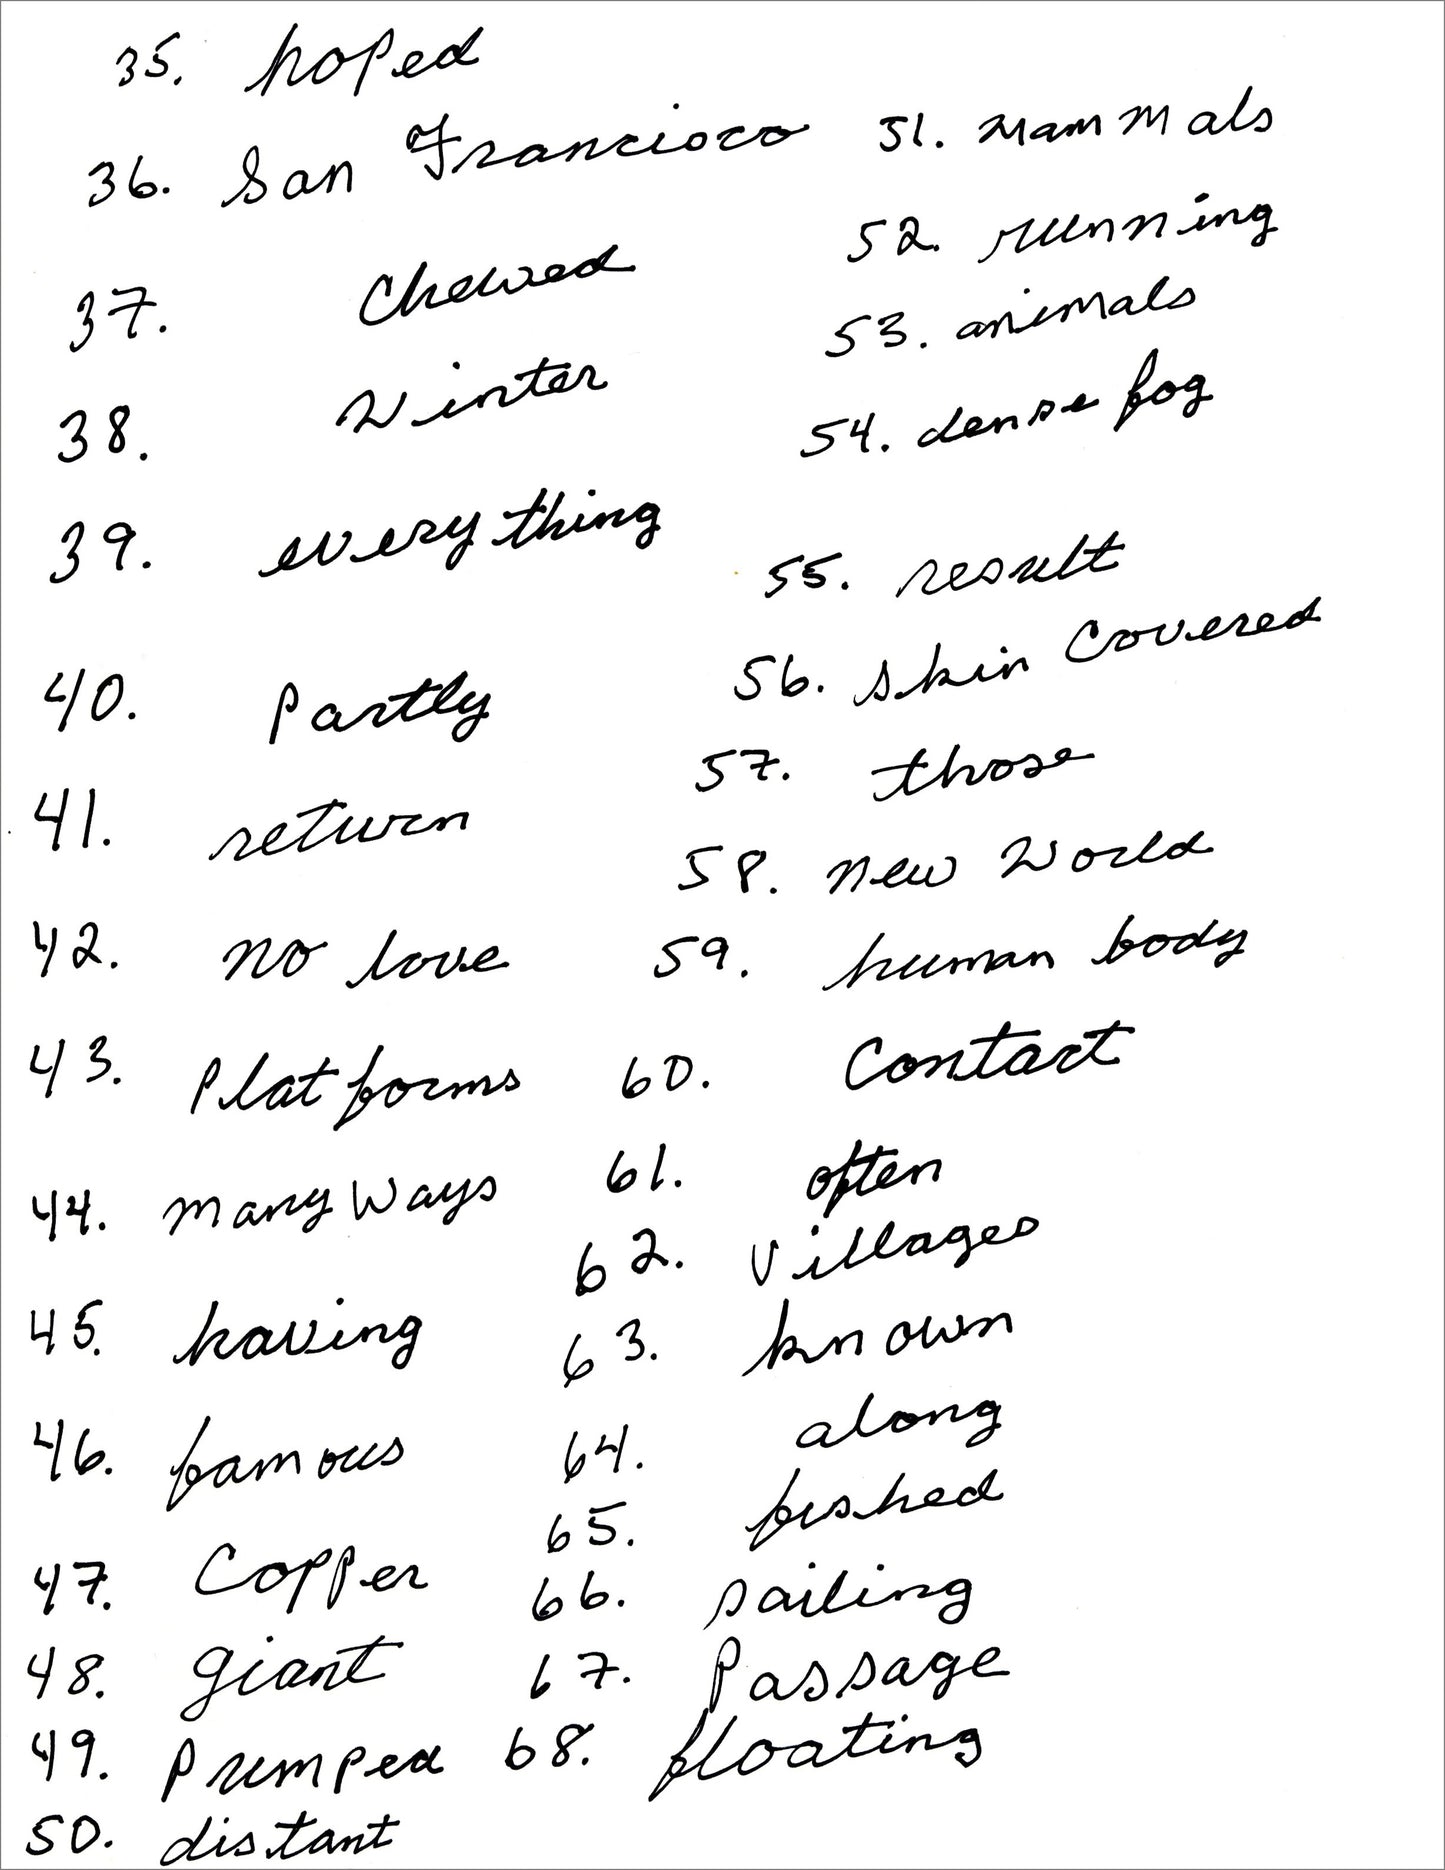 35. hoped
36. San Francisco
37. Chewed
38. Winter
39. everything
40. Partly
41. return
42. no love
43. Platforms
44. many ways
45. having
46. famous
47. Copper
48. giant
49. Pumped
50. distant
51. Mammals
52. running
53. animals
54. dense fog
55. result
56. skin Covered
57. those
58. new World
59. human body
60. Contact
61. often
62. Villages
63. known
64. along
65. fished
66. sailing
67. Passage
68. floating